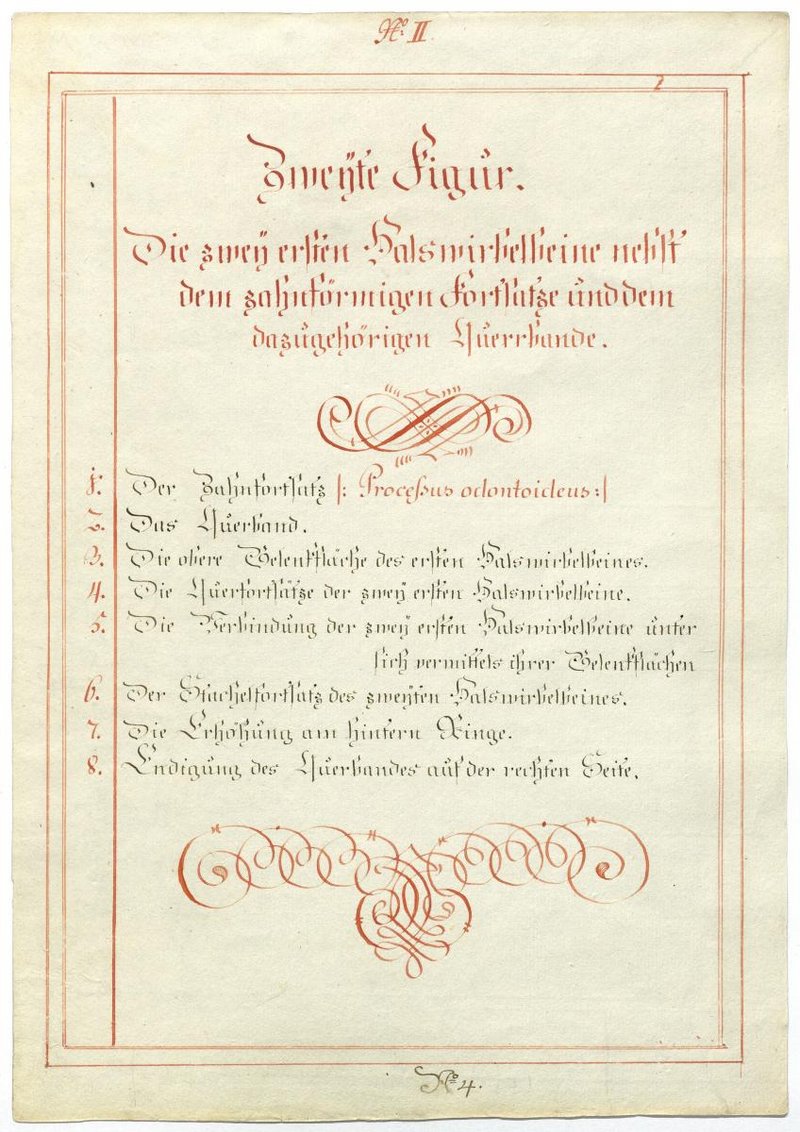 No. II
2
Zweÿte Figur.
Die zweÿ ersten Halswirbelbeine nebst
dem zahnförmigen Fortsatze und dem
dazugehörigen Querrbande.
1. Der Zahnfortsatz |: Processus odontoideus :|
2. Das Querband.
3. Die obere Gelenkfläche des ersten Halswirbelbeines.
4. Die Querfortsätze der zweÿ ersten Halswirbelbeine.
5. Die Verbindung der zweÿ ersten Halswirbelbeine unter
sich vermittels ihrer Gelenkflächen
6. Der Stachelfortsatz des zweÿten Halswirbelbeines.
7. Die Erhöhung am hintern Ringe.
8. Endigung des Querbandes auf der rechten Seite.
No. 4.